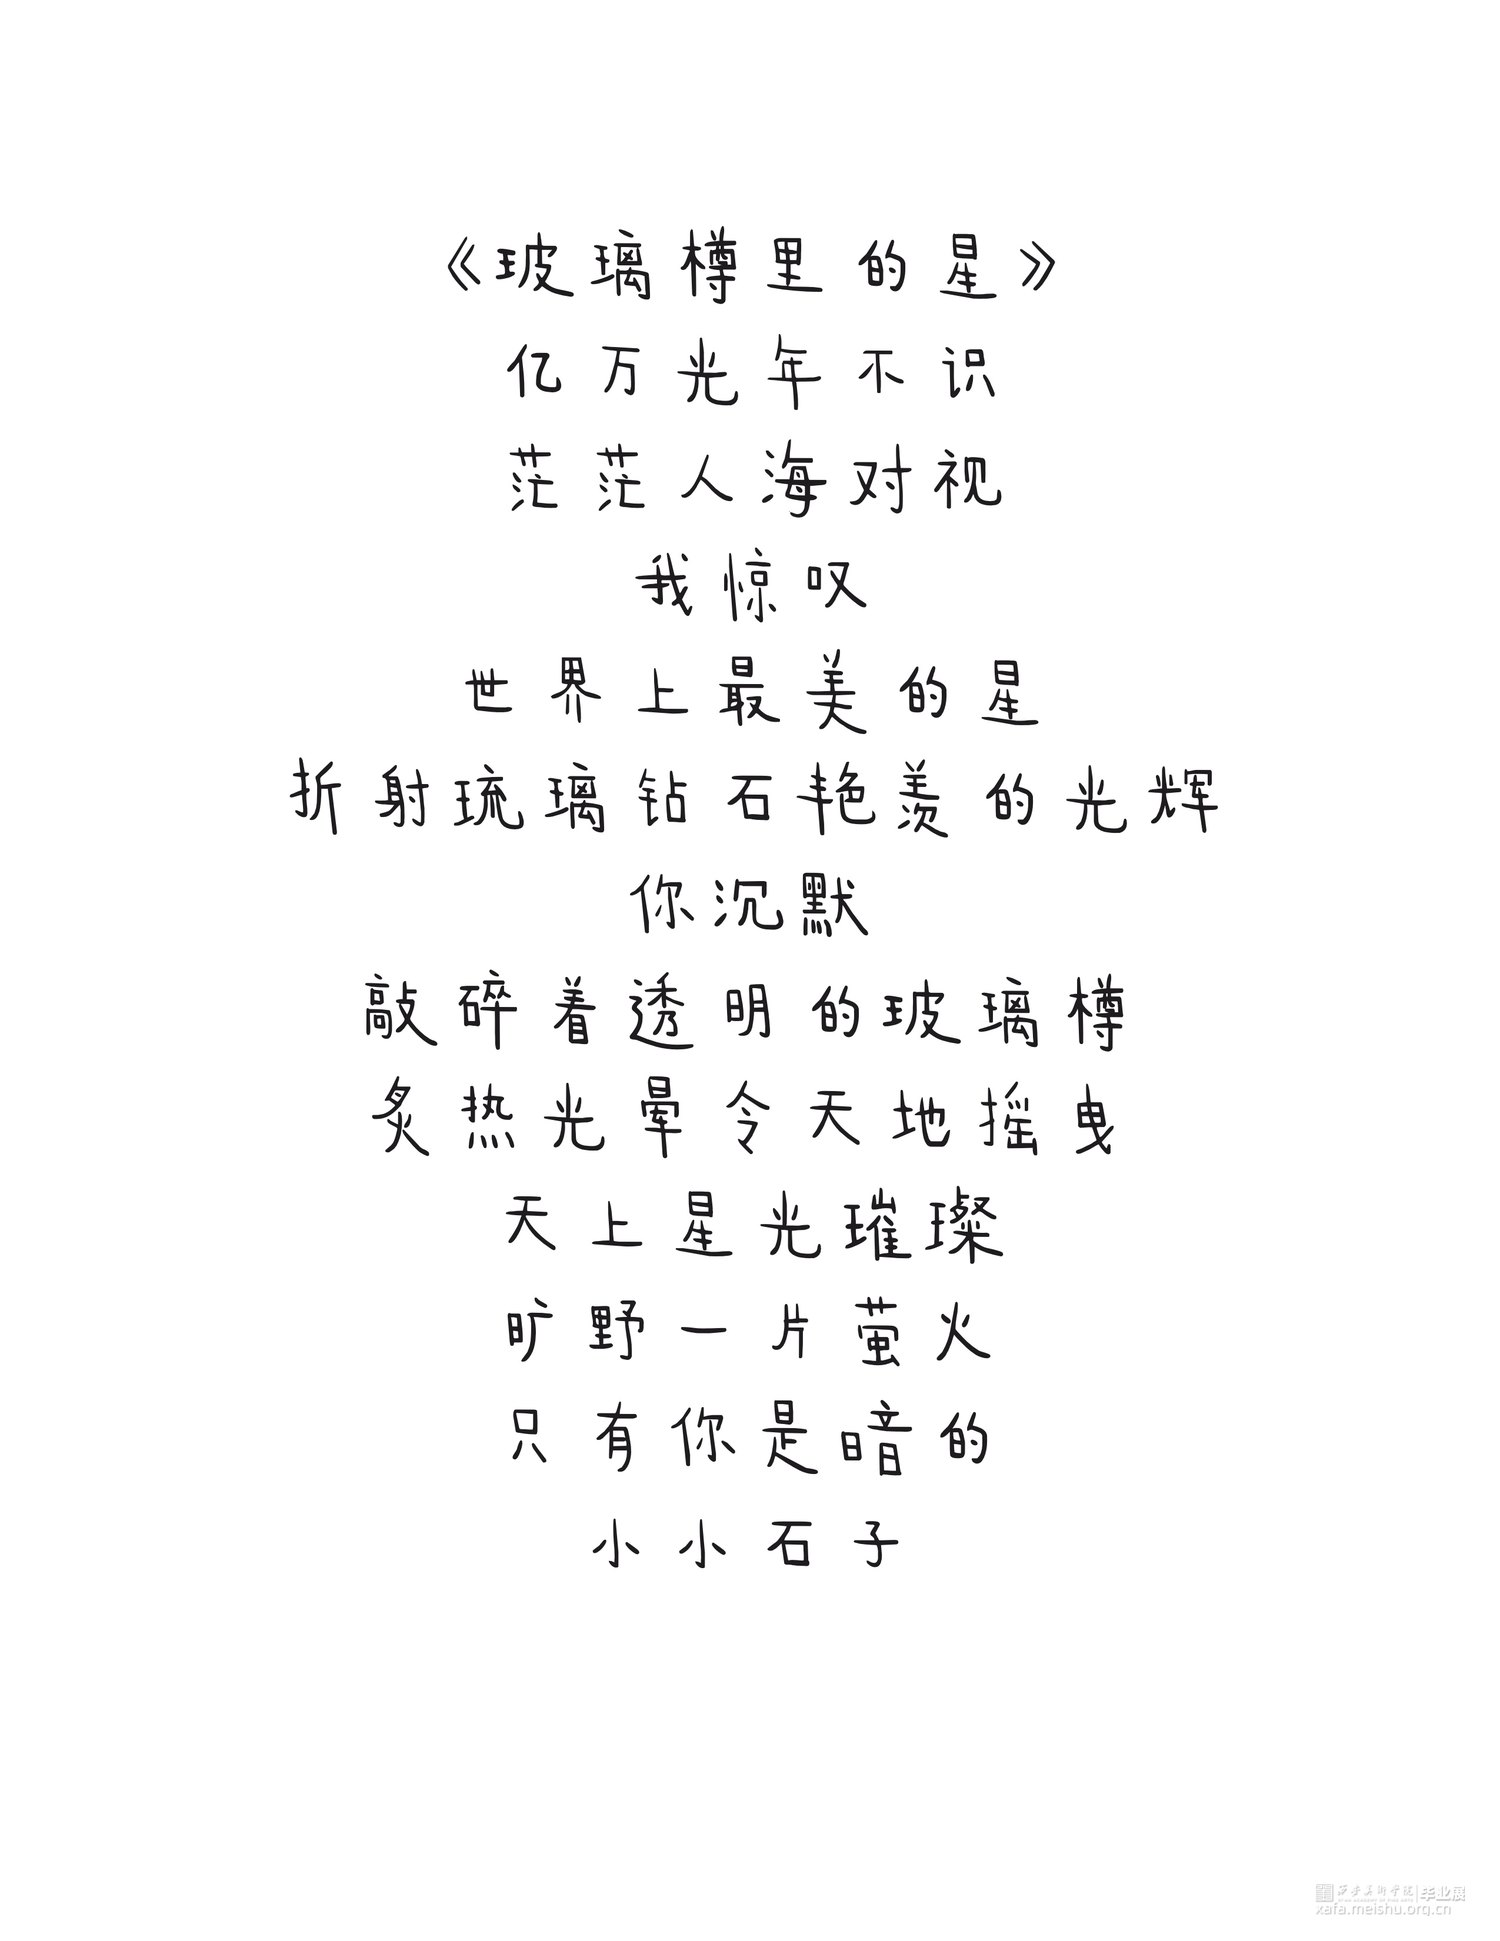 《玻璃樽里的星》
亿万光年不识
茫茫人海对视
我惊叹
世界上最美的星
折射琉璃钻石艳羡的光辉
你沉默
敲碎着透明的玻璃樽
炙热光晕令天地摇曳
天上星光璀璨
旷野一片萤火
只有你是暗的
小小石子
西安美术学院 毕业展
xafa.meishu.org.cn